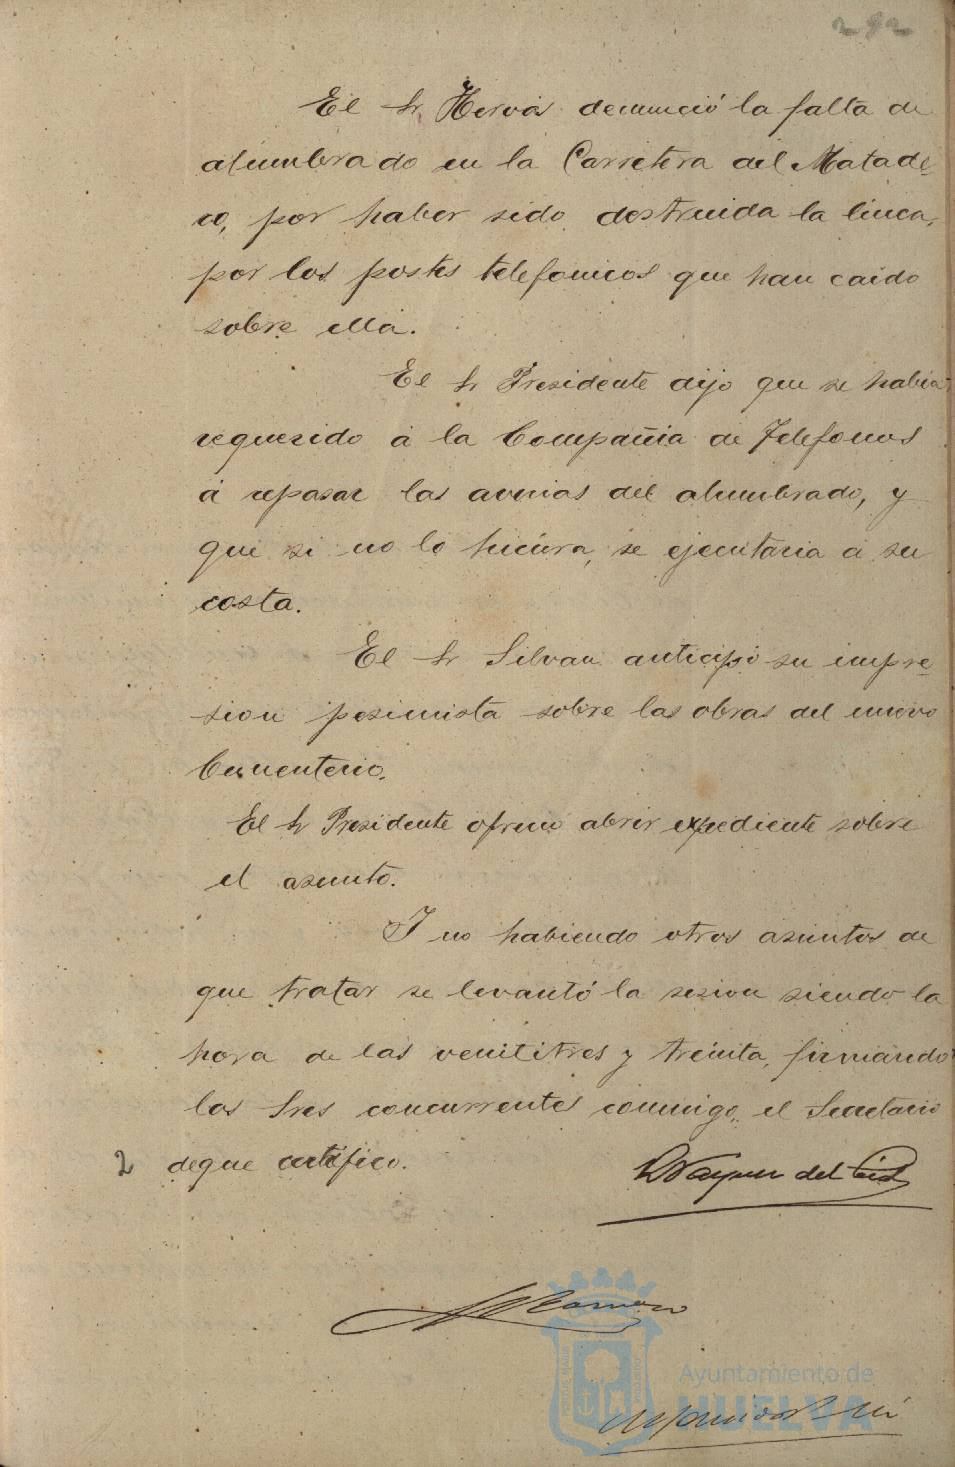 292
El Sr Hervás denunció la falta de
alumbrado en la Carretera del Matade-
ro, por haber sido destruida la linea,
por los postes telefonicos que han caido
sobre ella.
El Sr Presidente dijo que se habia
requerido á la Compañia de Telefonos
á repasar las averias del alumbrado, y
que si no lo hiciera, se ejecutaria á su
costa.
El Sr Silvan anticipó su impre-
sion pesimista sobre las obras del nuevo
Cementerio.
El Sr Presidente ofreció abrir expediente sobre
el asunto.
Y no habiendo otros asuntos de
que tratar se levantó la sesion siendo la
hora de las veintitres y treinta, firmando
los Sres concurrentes conmigo, el Secretario
2 de que certifico.
del Cid
Ayuntamiento de
HUELVA